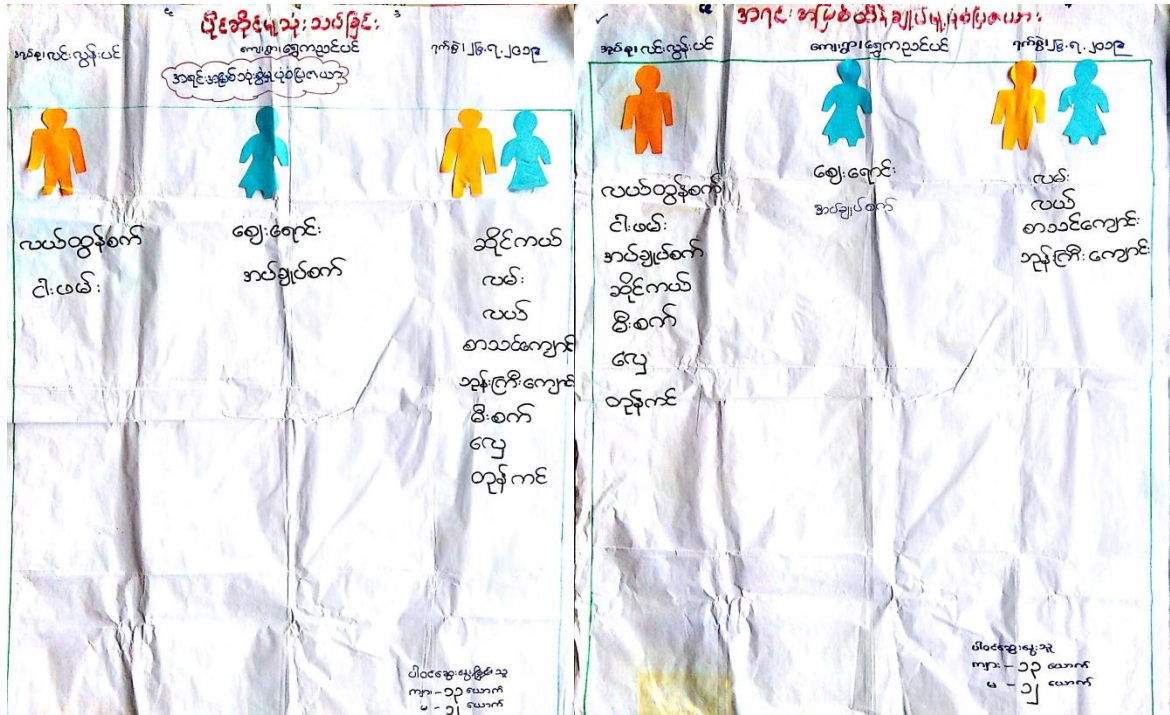 ပိုင်ဆိုင်မှုသုံးသပ်ခြင်း
အုပ်စု၊ လင်းလွန်းပင်
ကျေးရွာ၊ ရွှေကညင်ပင်
ရက်စွဲ၊ ၂၆.၇.၂၀၁၉
အရင်းအမြစ်သုံးစွဲမှုပုံစံပြဇယား
လယ်ထွန်စက်
ငါးဖမ်း
ဈေးရောင်း
အပ်ချုပ်စက်
ဆိုင်ကယ်
လမ်း
လယ်
စာသင်ကျောင်း
ဘုန်းကြီးကျောင်း
မီးစက်
လှေ
တုန်ကင်
ပါဝင်ဆွေးနွေး သူ
ကျား - ၁၃ ယောက်
မ - ၁၂ ယောက်
အရင်းအမြစ်ထိန်းချုပ်မှုပုံစံပြဇယား
အုပ်စု၊ လင်းလွန်းပင်
ကျေးရွာ၊ ရွှေကညင်ပင်
ရက်စွဲ၊ ၂၆.၇.၂၀၁၉
လယ်ထွန်စက်
ငါးဖမ်း
အပ်ချုပ်စက်
ဆိုင်ကယ်
မီးစက်
လှေ
တုန်ကင်
ဈေးရောင်း
အပ်ချုပ်စက်
လမ်း
လယ်
စာသင်ကျောင်း
ဘုန်းကြီးကျောင်း
ပါဝင်ဆွေးနွေးသူ
ကျား - ၁၃ ယောက်
မ - ၁၂ ယောက်